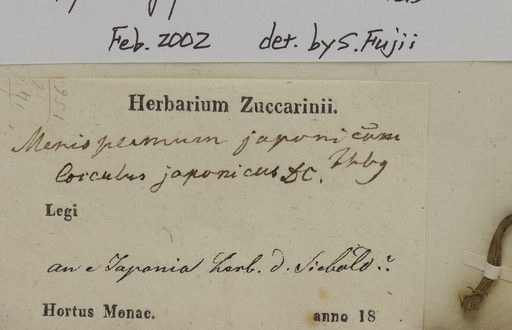 Feb. 2002 det. by S. Fujii
Herbarium Zuccarinii.
Menispermum japonicum Thbg
Cocculus japonicus DC.
Legi
an e Japonia herb. d. Siebold ?
Hortus Monac. anno 18